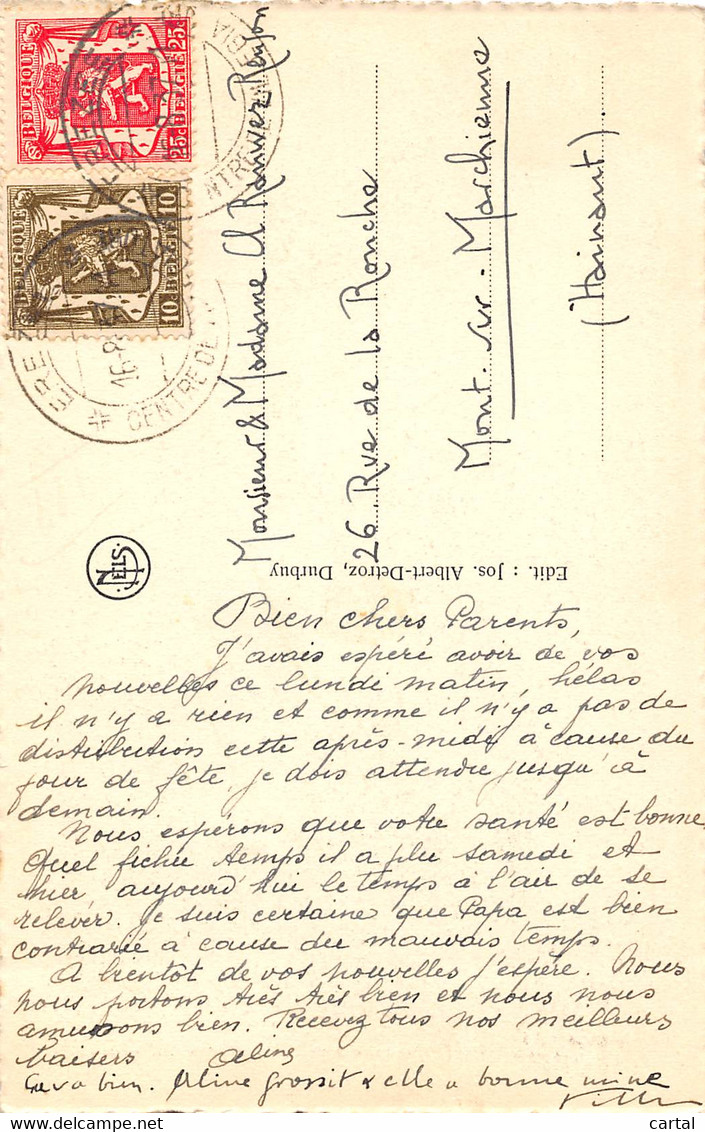 BELGIQUE
25c BELGIË 25c
BELGIQUE
10 BELGIË 10
CENTRE DE
EREZ
16-8
NELS
Monsieur & Madame A Ranwez
26 Rue de la Ronche
Mont-sur-Marchienne
(Hainaut).
Edit. : Jos. Albert-Detroz, Durbuy
Bien chers Parents,
J'avais espéré avoir de vos
nouvelles ce lundi matin, hélas
il n'y a rien et comme il n'y a pas de
distribution cette après-midi à cause du
jour de fête, je dois attendre jusqu'à
demain.
Nous espérons que votre santé est bonne.
Quel fichu temps il a plu samedi et
hier, aujourd'hui le temps à l'air de se
relever. Je suis certaine que Papa est bien
contrarié à cause du mauvais temps.
A bientôt de vos nouvelles j'espère. Nous
nous portons très très bien et nous nous
amusons bien. Recevez tous nos meilleurs
baisers Aline
Ça va bien. Aline grossit & elle a bonne mine
cartal